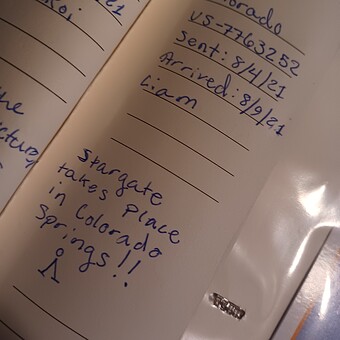 /21
Koi
the
olorado
US-7763252
Sent: 8/4/21
Arrived: 8/9/21
Liam
Stargate
takes place
in Colorado
Springs!!